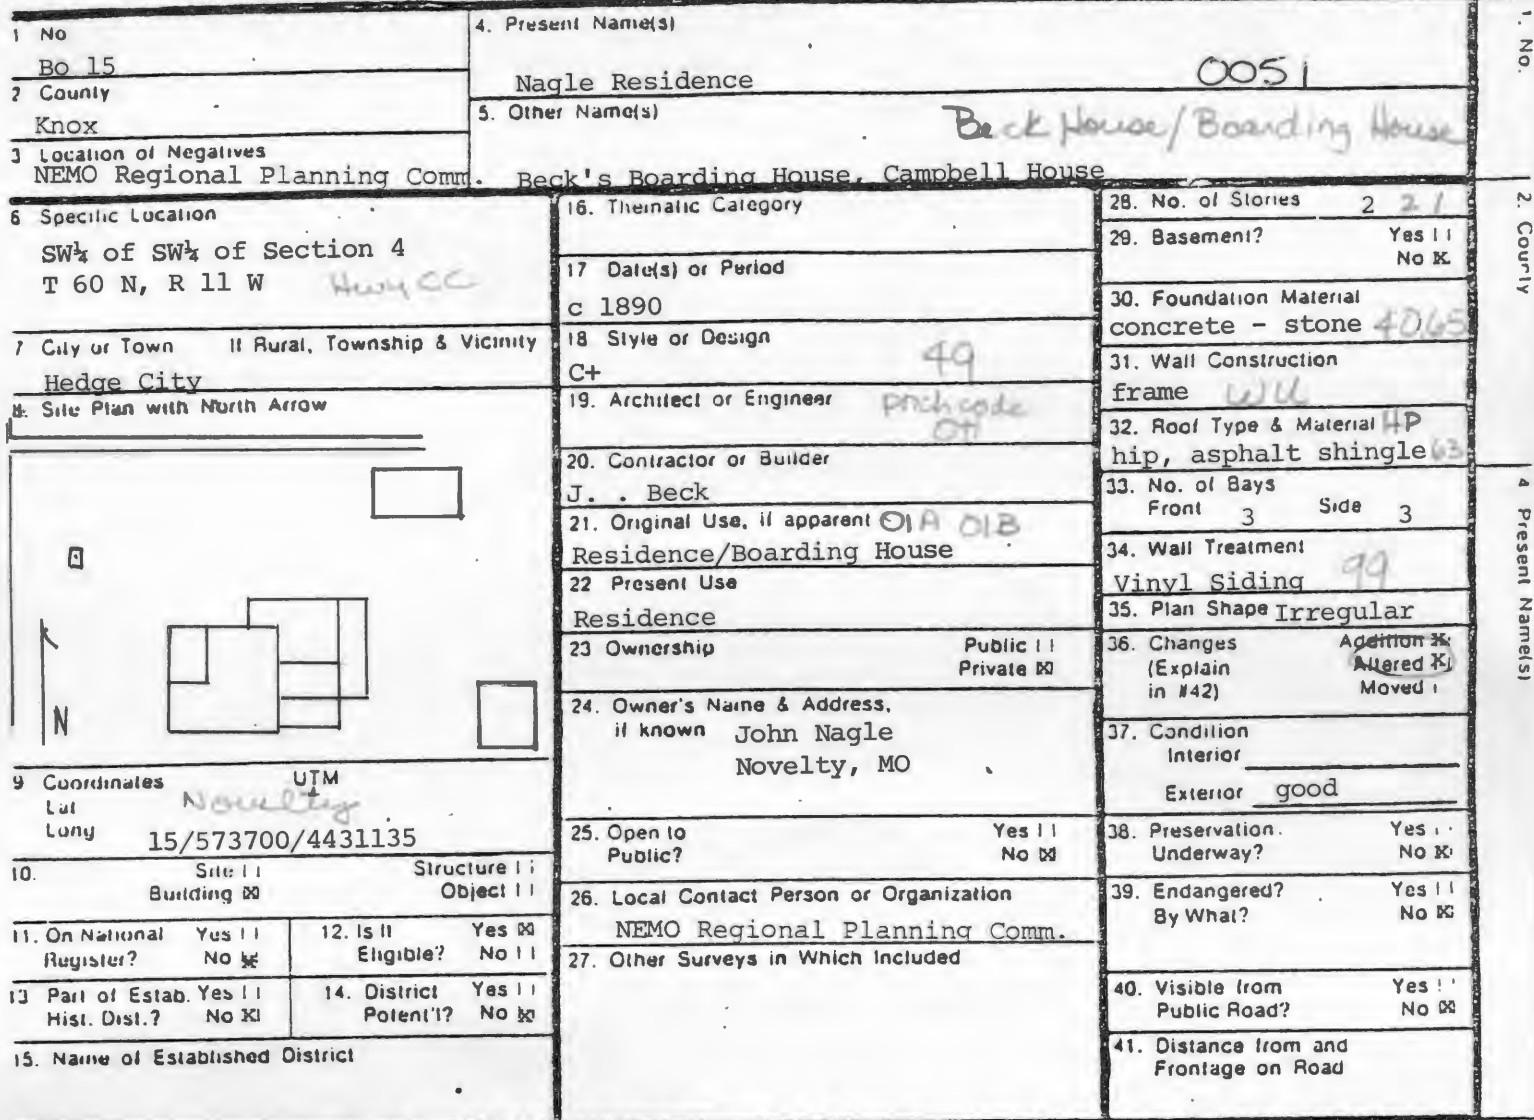 1 No
Bo 15
2 County
Knox
3 Location of Negatives
NEMO Regional Planning Comm.
4. Present Name(s)
Nagle Residence
0051
5. Other Name(s)
Beck House/Boarding House
Beck's Boarding House, Campbell House
6 Specific Location
SW¼ of SW¼ of Section 4
T 60 N, R 11 W Hwy CC
7 City or Town If Rural, Township & Vicinity
Hedge City
8. Site Plan with North Arrow
N
9 Coordinates UTM
Lat
Long
Novelty
15/573700/4431135
10. Site Structure
Building X Object
11. On National Register? Yes No X
12. Is It Eligible? Yes X No
13 Part of Estab. Hist. Dist.? Yes No X
14. District Potent'l? Yes No X
15. Name of Established District
16. Thematic Category
17 Date(s) or Period
c 1890
18 Style or Design
C+ 49
19. Architect or Engineer porch code
20. Contractor or Builder
J. . Beck
21. Original Use, if apparent 01A 01B
Residence/Boarding House
22 Present Use
Residence
23 Ownership Public
Private X
24. Owner's Name & Address,
if known John Nagle
Novelty, MO
25. Open to Yes
Public? No X
26. Local Contact Person or Organization
NEMO Regional Planning Comm.
27. Other Surveys in Which Included
28. No. of Stories 2 2
29. Basement? Yes
No X
30. Foundation Material
concrete - stone 4065
31. Wall Construction
frame
32. Roof Type & Material HP
hip, asphalt shingle 63
33. No. of Bays
Front 3 Side 3
34. Wall Treatment
Vinyl Siding 99
35. Plan Shape Irregular
36. Changes Addition X
(Explain Altered X
in #42) Moved
37. Condition
Interior
Exterior good
38. Preservation Yes
Underway? No X
39. Endangered? Yes
By What? No X
40. Visible from Yes
Public Road? No X
41. Distance from and
Frontage on Road
1. No.
2. County
4 Present Name(s)